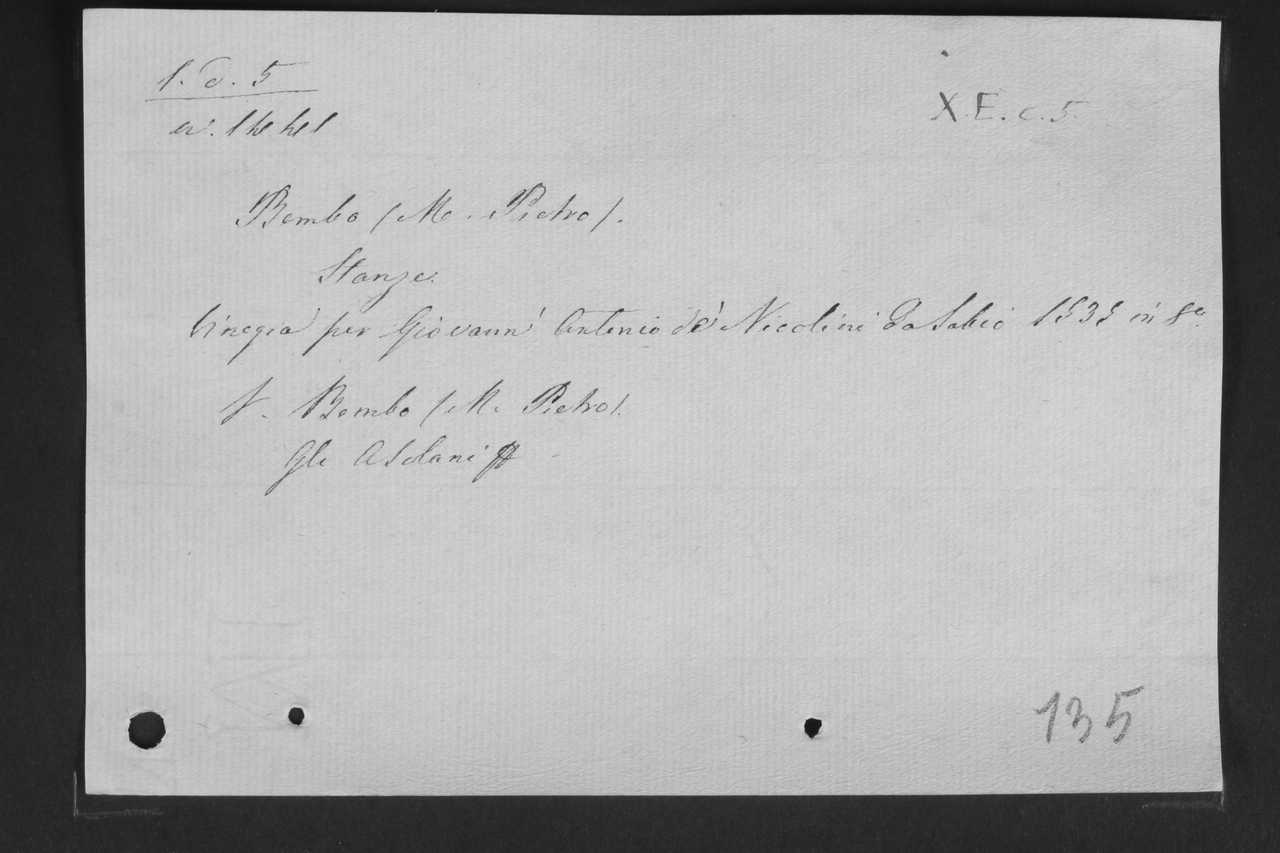 X. E. c. 5.
Bembo (M. Pietro).
Stanze.
Vinegia per Giovann' Antonio de' Nicolini da Sabio 1535 in 8º.
V. Bembo (M. Pietro).
Gli Asolani
135